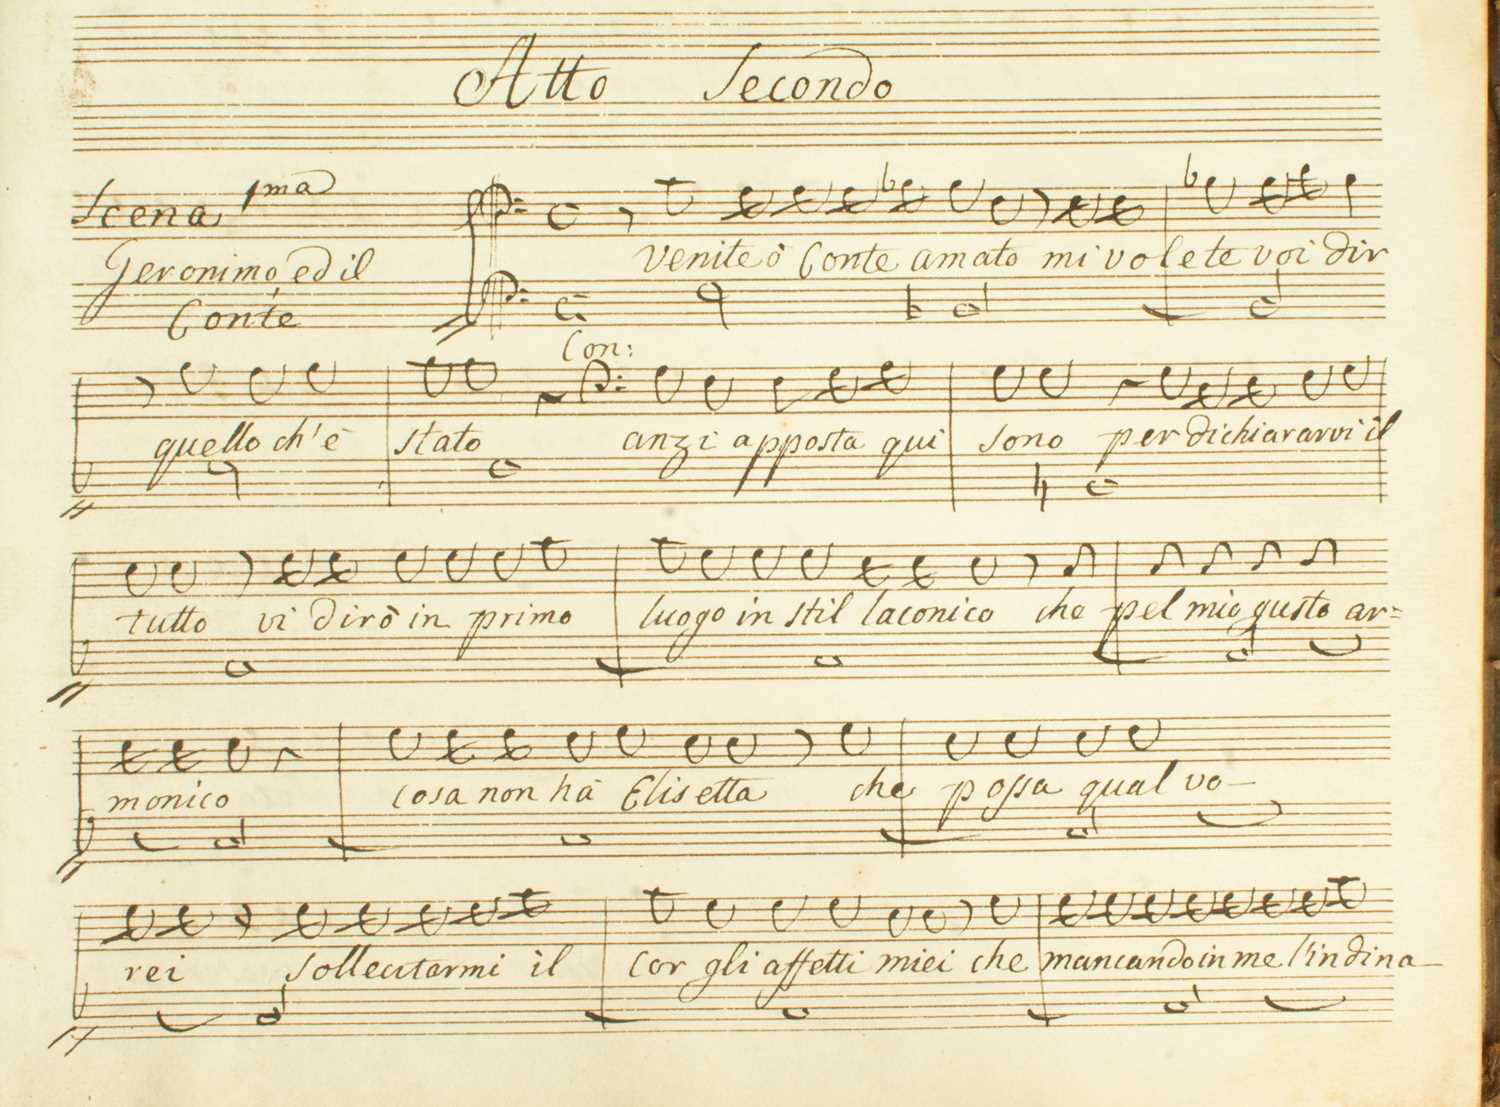 Atto Secondo
Scena 1ma
Geronimo, ed il
Conte
Venite ò Conte amato mi volete voi dir
Con:
quello ch'è stato anzi apposta qui sono per dichiararvi il
tutto vi dirò in primo luogo in stil laconico che pel mio gusto ar=
monico cosa non hà Elisetta che possa qual vo-
rei sollecitarmi il cor gli affetti miei che mancando in me l'indina-